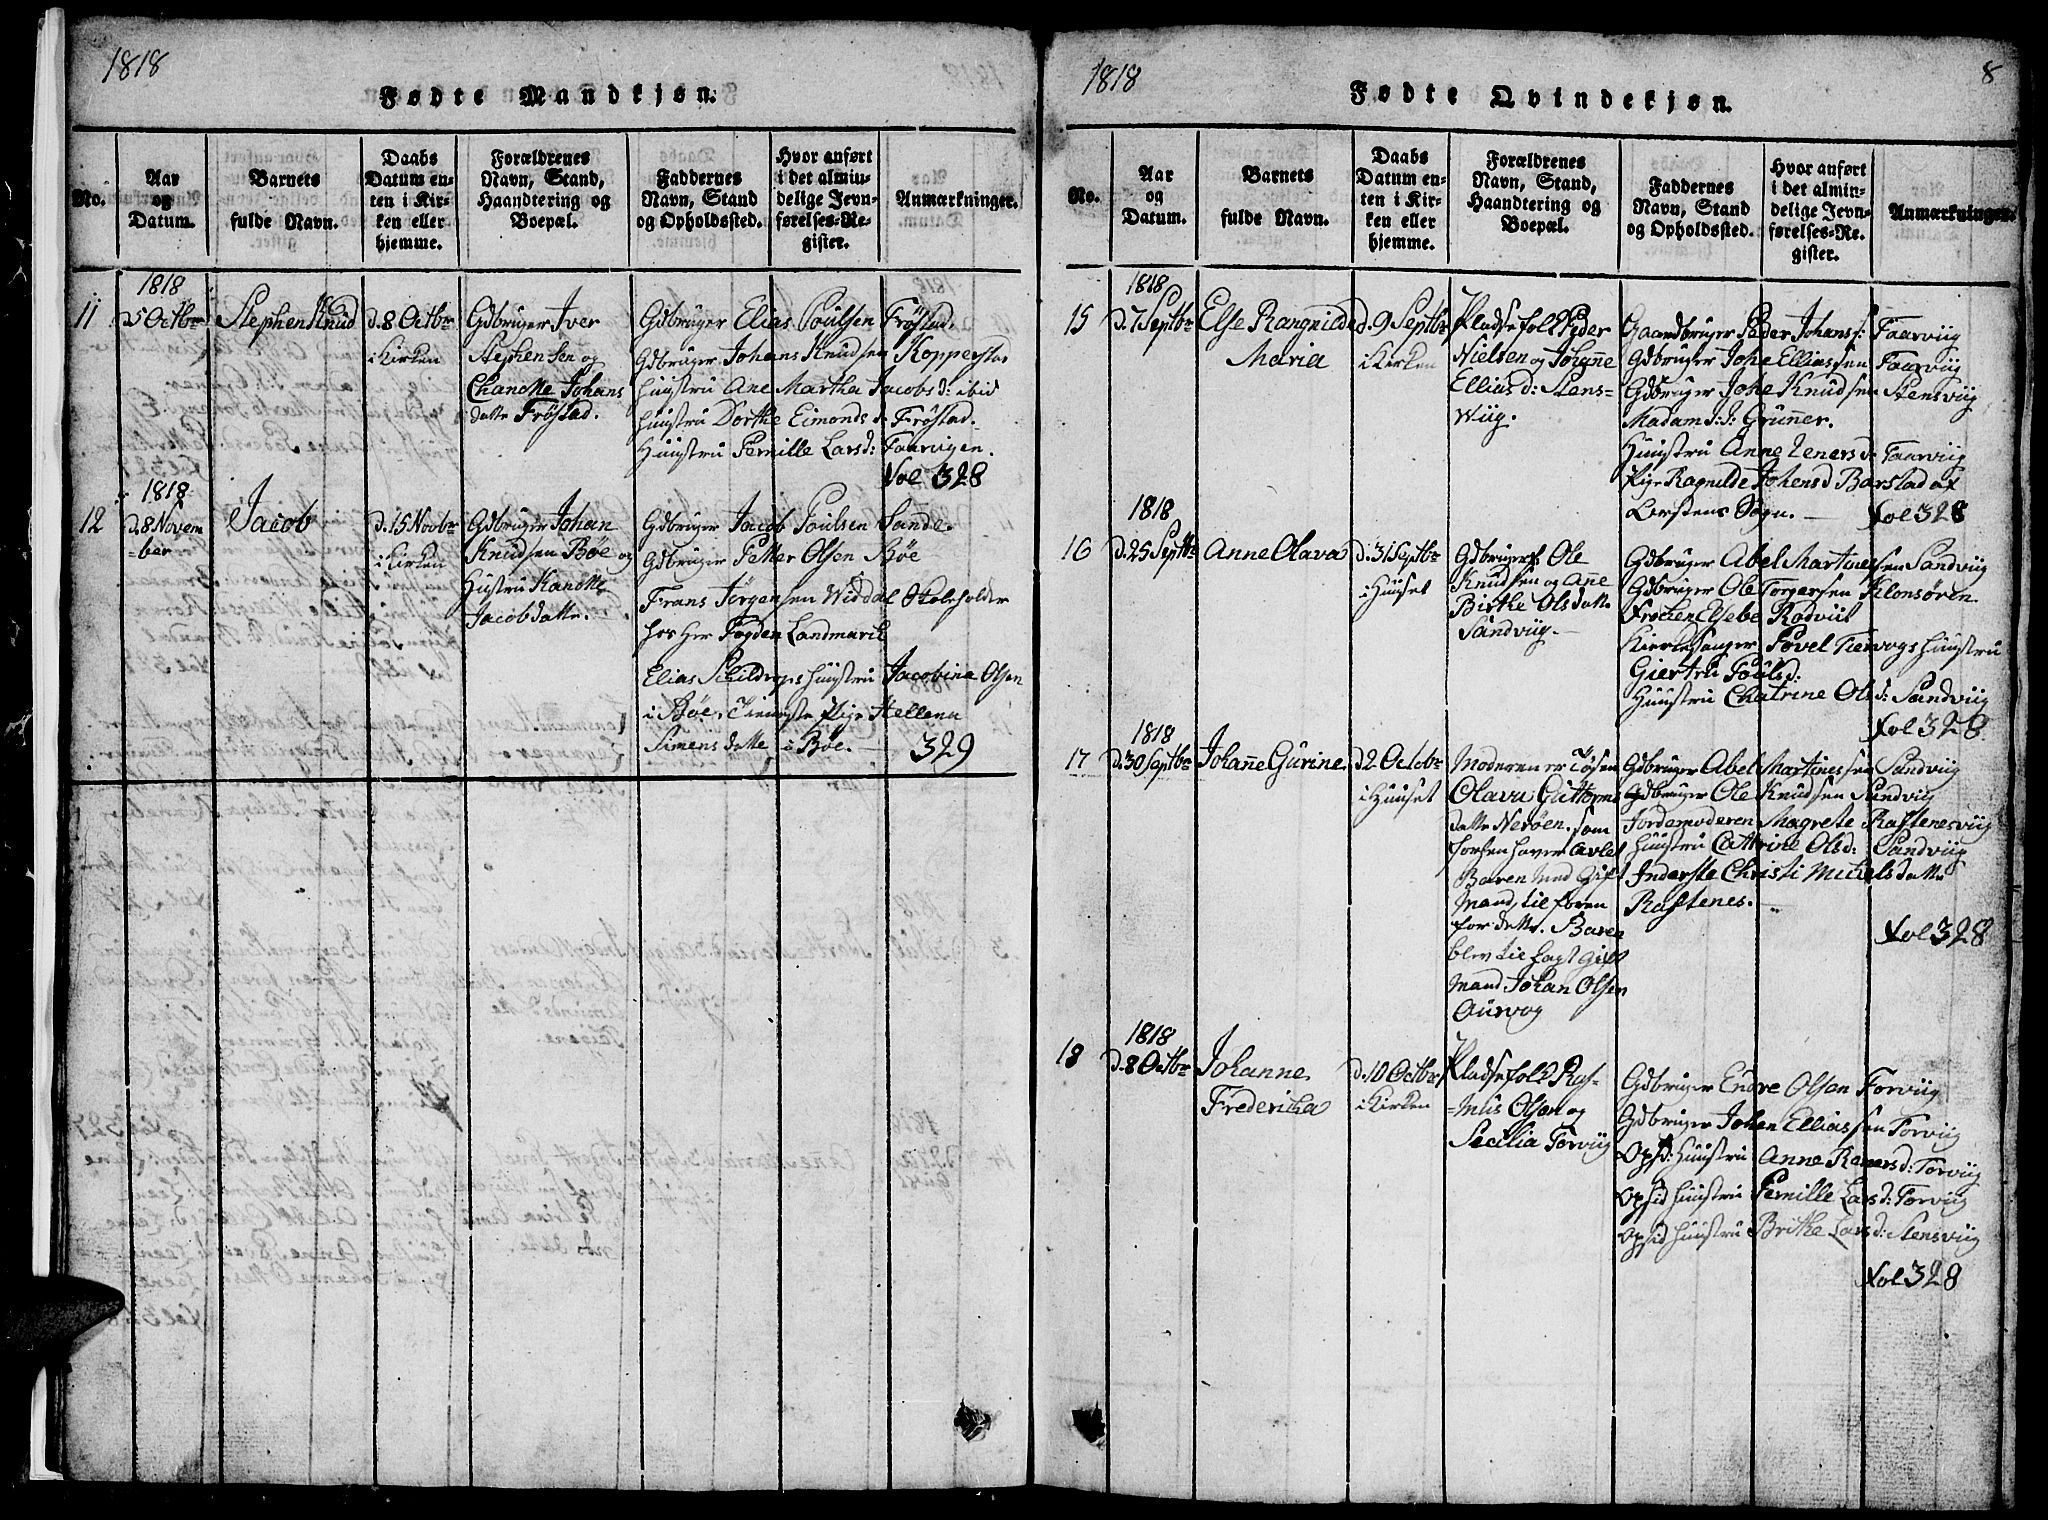 1818
Fødte Mandkjøn.
No.
Aar og Datum.
Barnets fulde Navn.
Daabs Datum enten i Kirken eller hjemme.
Forældrenes Navn, Stand, Haandtering og Boepæl.
Faddernes Navn, Stand og Opholdssted.
Hvor anført i det almindelige Jevnførelses-Register.
Anmærkninger.
1818
11
D 5 Octbr
Stephen Knud
d. 8 Octbr
i Kirken
Gdbruger Iver
Stephensen og
Chanette Johans
datte Frøstad.
Gdbruger Elias Poulsen Frøstad.
Gdbruger Johans Knudsen Kopperstad
Huustru Ane Martha Jacobsd: ibid
Huustru Dorthe Eimonds d. Frøstad.
Huustru Pernille Larsd: Faarvigen.
Fol 328
1818
12
d. 8 Novem
=ber
Jacob
d. 15 Novbr
i Kirken
Gdbruger Johan
Knudsen Bøe og
Hustru Kanette
Jacobsdatte.
Gdbruger Jacob Poulsen Sande.
Gdbruger Petter Olsen Bøe
Frans Jørgensen Widdal Skoleholder
hos Her Fogden Landmark
Elias Schildrops Huustru Jacobine Olsen
i Bøe. Tieneste Pige Hellena
Simensdatte i Bøe.
329
1818
8
Fødte Qvindekjøn.
No.
Aar og Datum.
Barnets fulde Navn.
Daabs Datum enten i Kirken eller hjemme.
Forældrenes Navn, Stand, Haandtering og Boepæl.
Faddernes Navn, Stand og Opholdssted.
Hvor anført i det almindelige Jevnførelses-Register.
Anmærkninger.
1818
15
d. 7 Septbr
Else Rangnilde
Maria
d. 9 Septbr
i Kirken
Pladsefolk Peder
Nielsen og Johanne
Elliasd: Stens=
wiig.
Gaardbruger Peder Johans: Faarviig
Gdbruger Johe Elliassen Faarviig
Gdbruger Johe Knudsen Stensviig
Madam S: J: Grunner.
Huustru Anne Zenersd: Faarviig
Pige Ragnilde Johensd Barstad af
Sogn.
Fol 328
1818
16
d. 25 Septbr
Anne Olava
d. 31 Septbr
i Huuset
Gdbruger Ole
Knudsen og Ane
Birthe Olsdatte
Sandviig.
Gdbruger Abel Martinessen Sandviig
Gdbruger Ole Torgersen Klonsøren
Frøken Elsebe Rodvitt
Kierkesanger Povel Tiervogs Huustru
Giertru Poulsd:
Huustru Chatrine Olsd: Sandviig
Fol 328
1818
17
d. 30 Septbr
Johanne Gurine
d 2 Octobr
i Huuset
Moderen er Tøsen
Olava Guttorms
datte Nerøen. som
forhen haver avlet
Baren med Gift
Mand, tilforen
for dette. Baren
blev tillagt Gift
Mand Johan Olsen
Aurvog
Gdbruger Abel Martinessen Sandviig
Gdbruger Ole Knudsen Sandviig
Jordemoderen Magrete Raftenesviig
Huustru Cathrine Olsd: Sandviig
Inderste Christi Mickelsdatte
Raftenes.
Fol 328
1818
18
d. 8 Octbr
Johanne
Frederikka
d. 10 Octbr
i Kirken
Pladsefolk Ras=
=mus Olsen og
Secilia Torviig
Gdbruger Endre Olsen Forviig
Gdbruger Johen Elliassen Forviig
Opsd: Huustru Anne Renersd: Torviig
Opsid Huustru Pernille Larsd: Torviig
Opsid Huustru Brithe Larsd: Stensviig
Fol 328